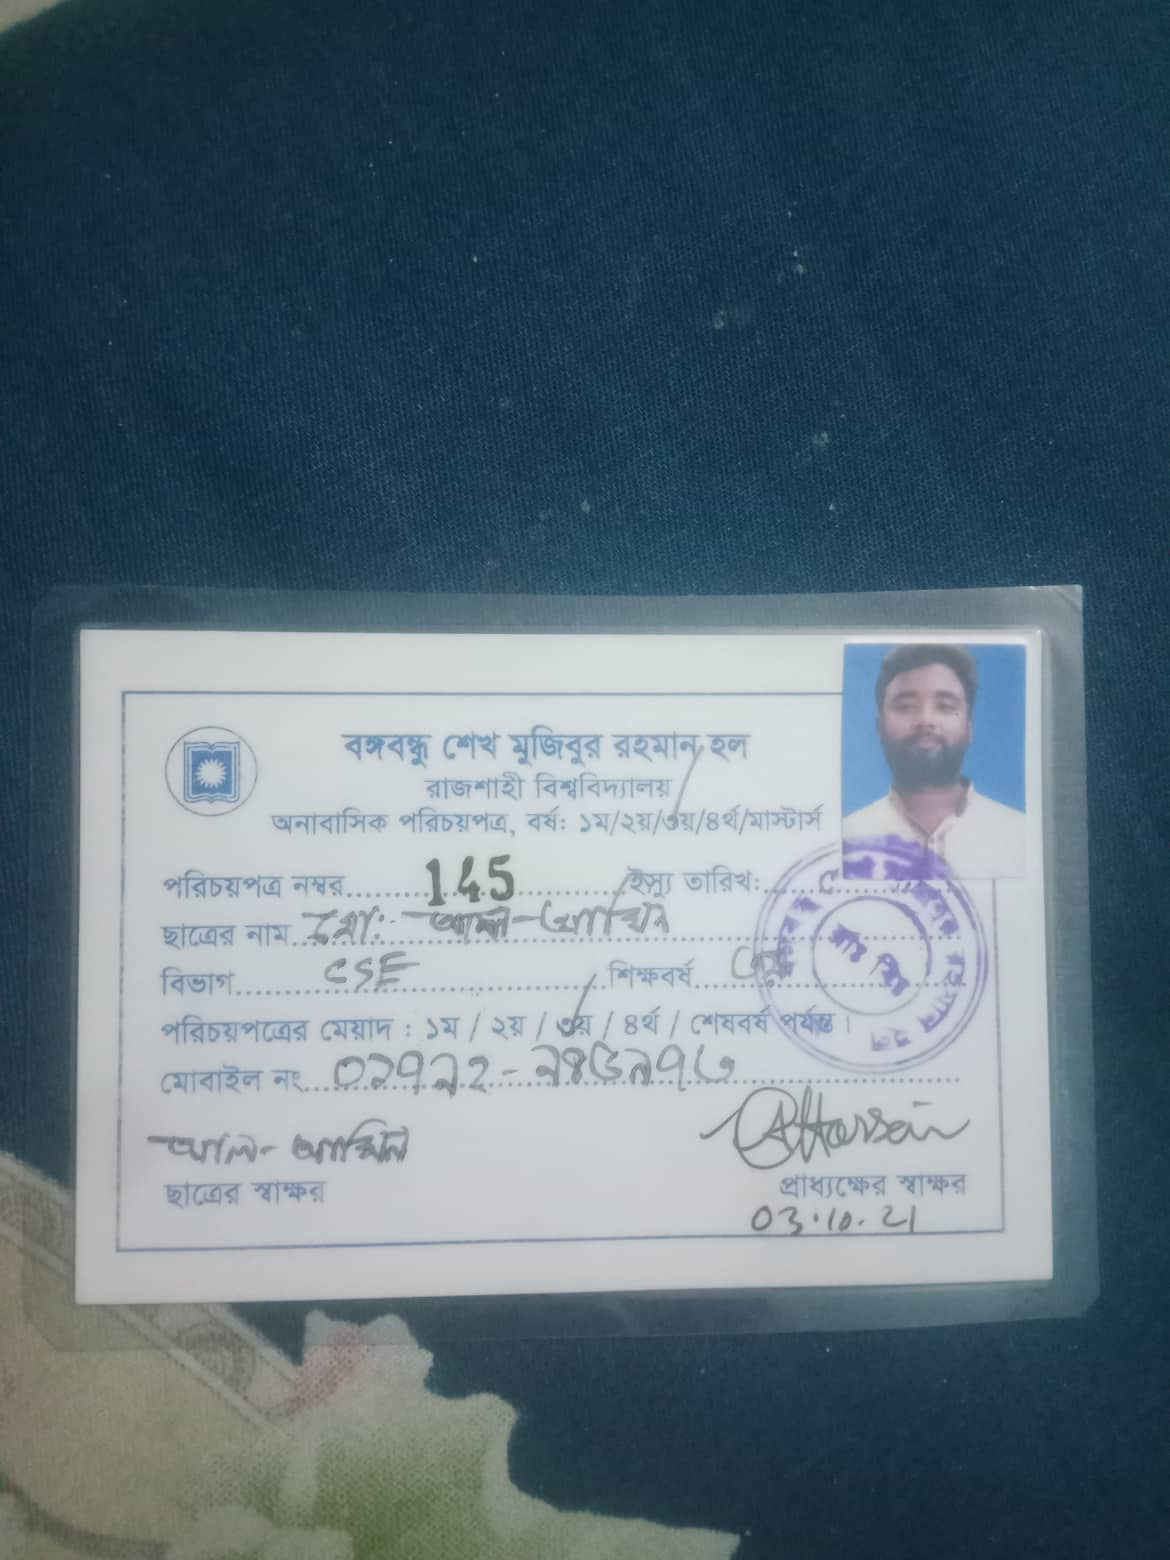 বঙ্গবন্ধু শেখ মুজিবুর রহমান হল
রাজশাহী বিশ্ববিদ্যালয়
অনাবাসিক পরিচয়পত্র, বর্ষ: ১ম/২য়/৩য়/৪র্থ/মাস্টার্স
পরিচয়পত্র নম্বর 145 ইস্যু তারিখ:
ছাত্রের নাম মো: আল-আমিন
বিভাগ CSE শিক্ষবর্ষ
পরিচয়পত্রের মেয়াদ : ১ম / ২য় / ৩য় / ৪র্থ / শেষবর্ষ পর্যন্ত।
মোবাইল নং
আল-আমিন
ছাত্রের স্বাক্ষর
Hossain
প্রাধ্যক্ষের স্বাক্ষর
03.10.21